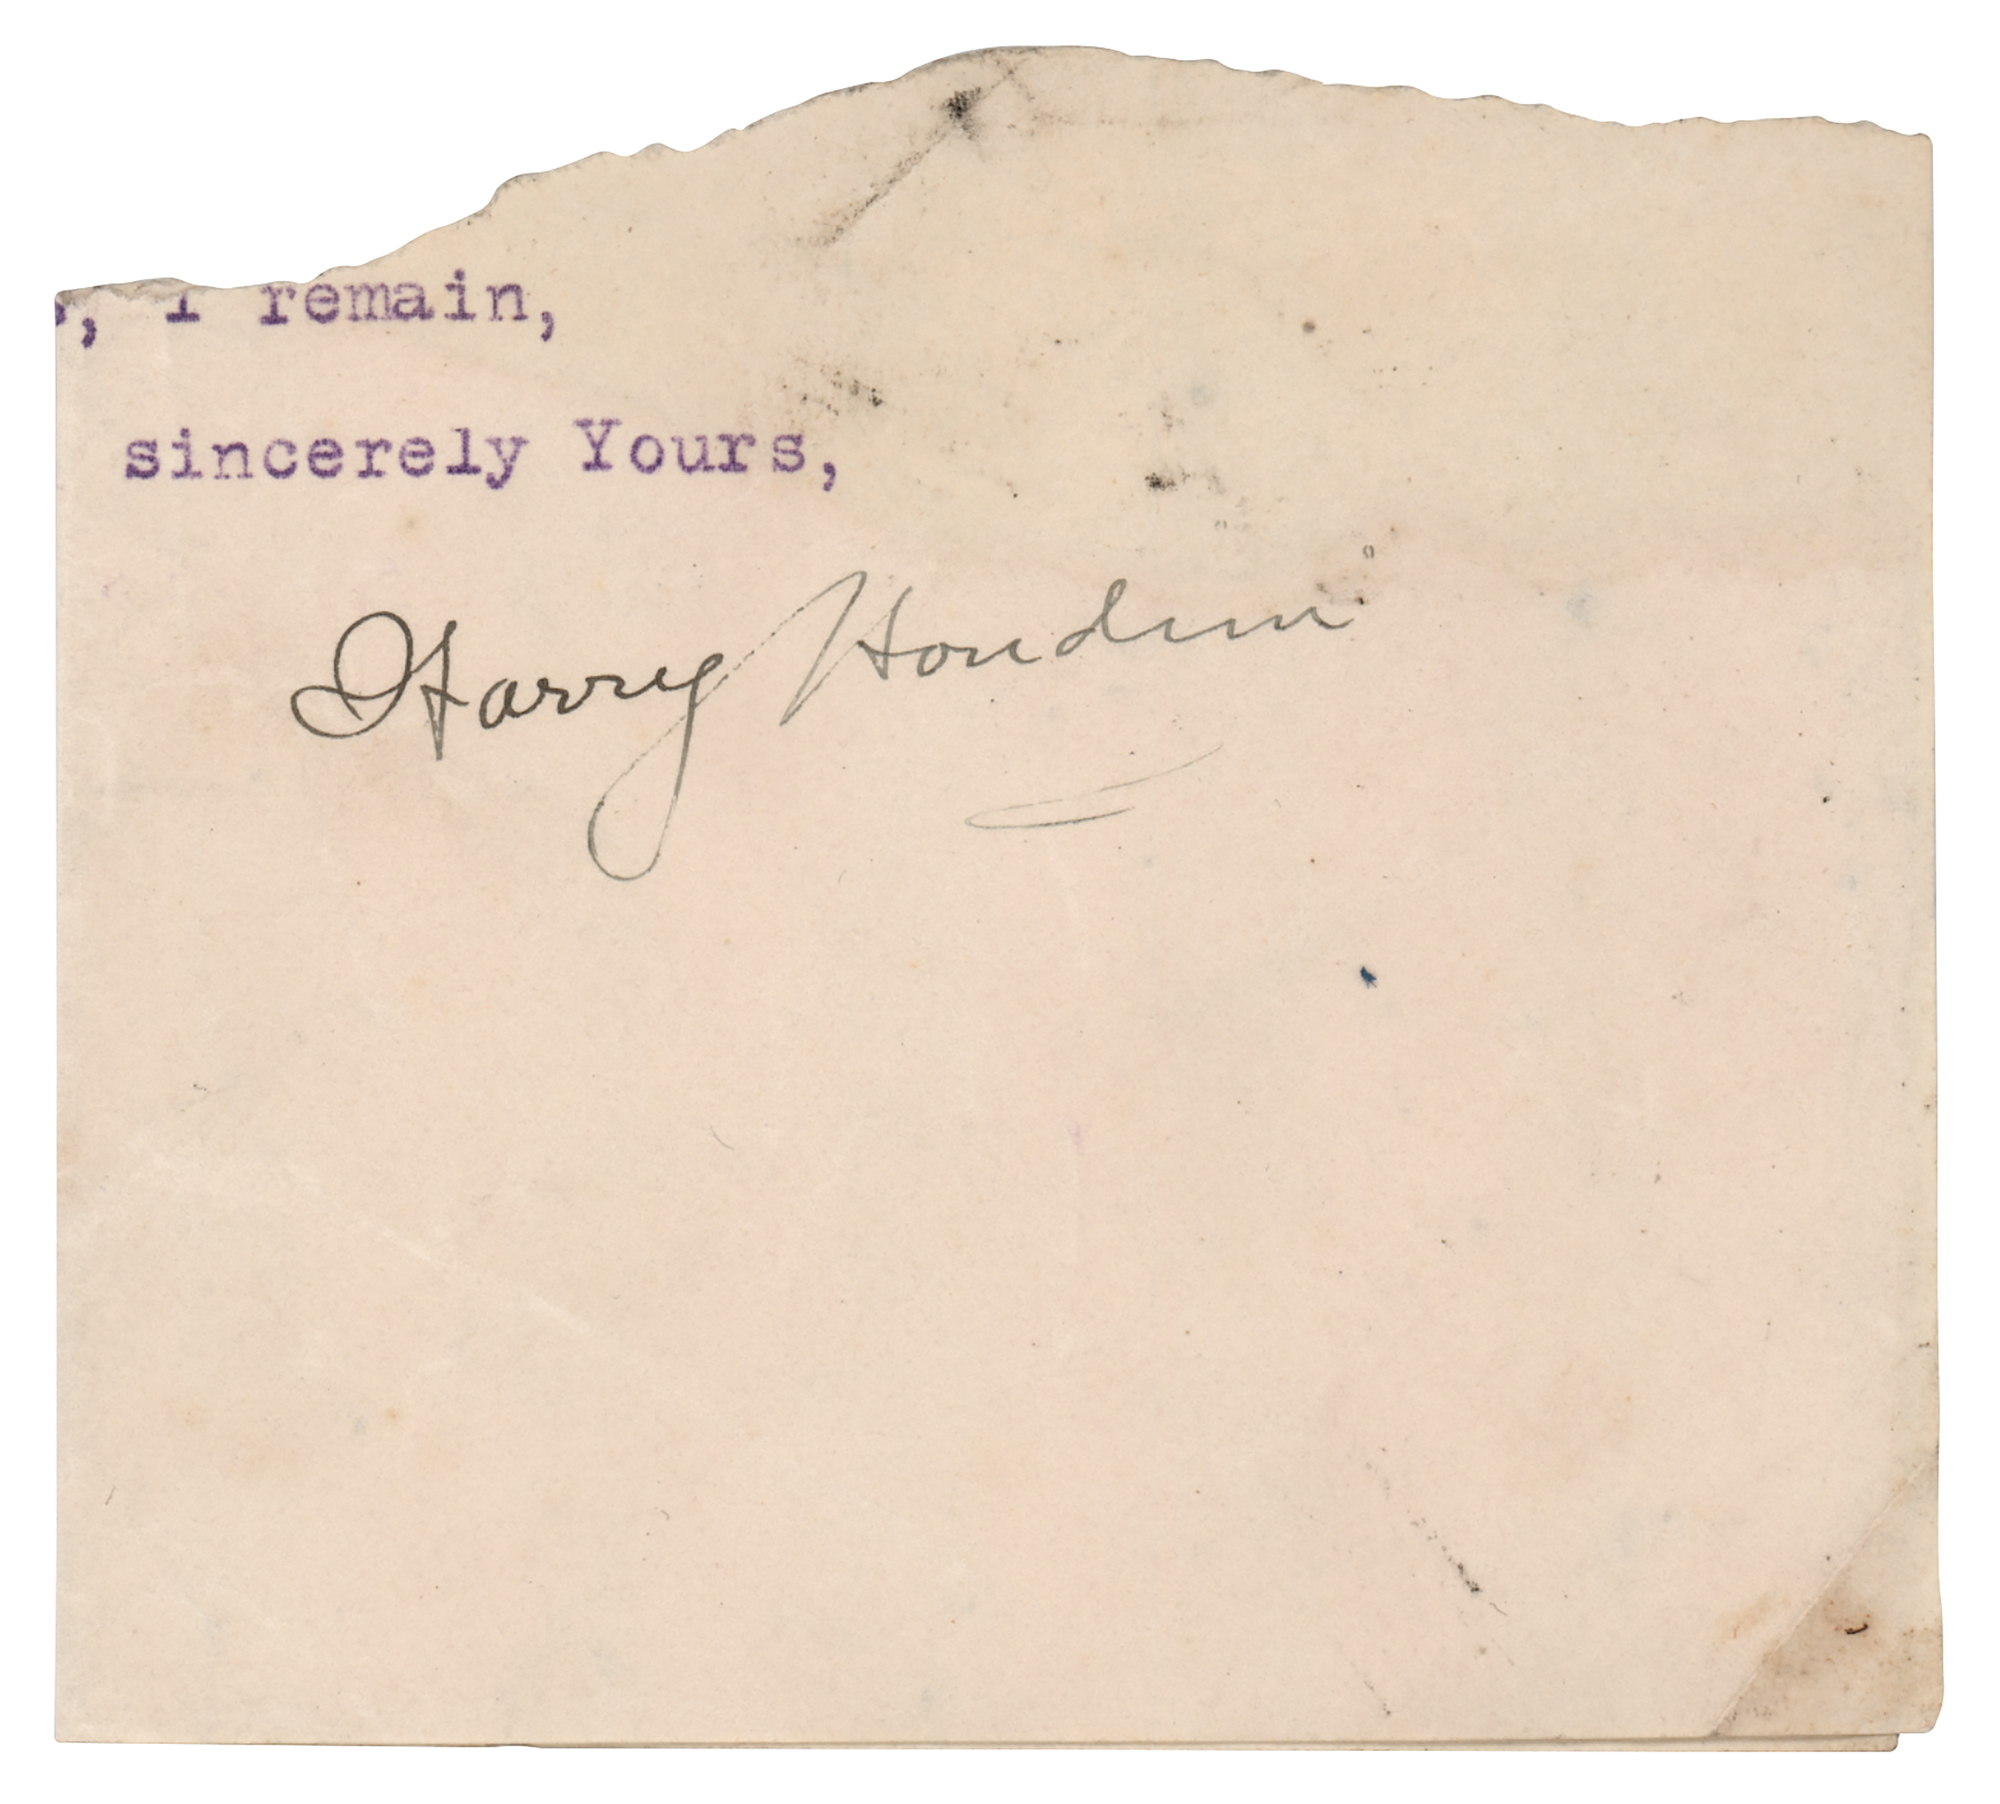 , I remain,
sincerely Yours,
Harry Houdini